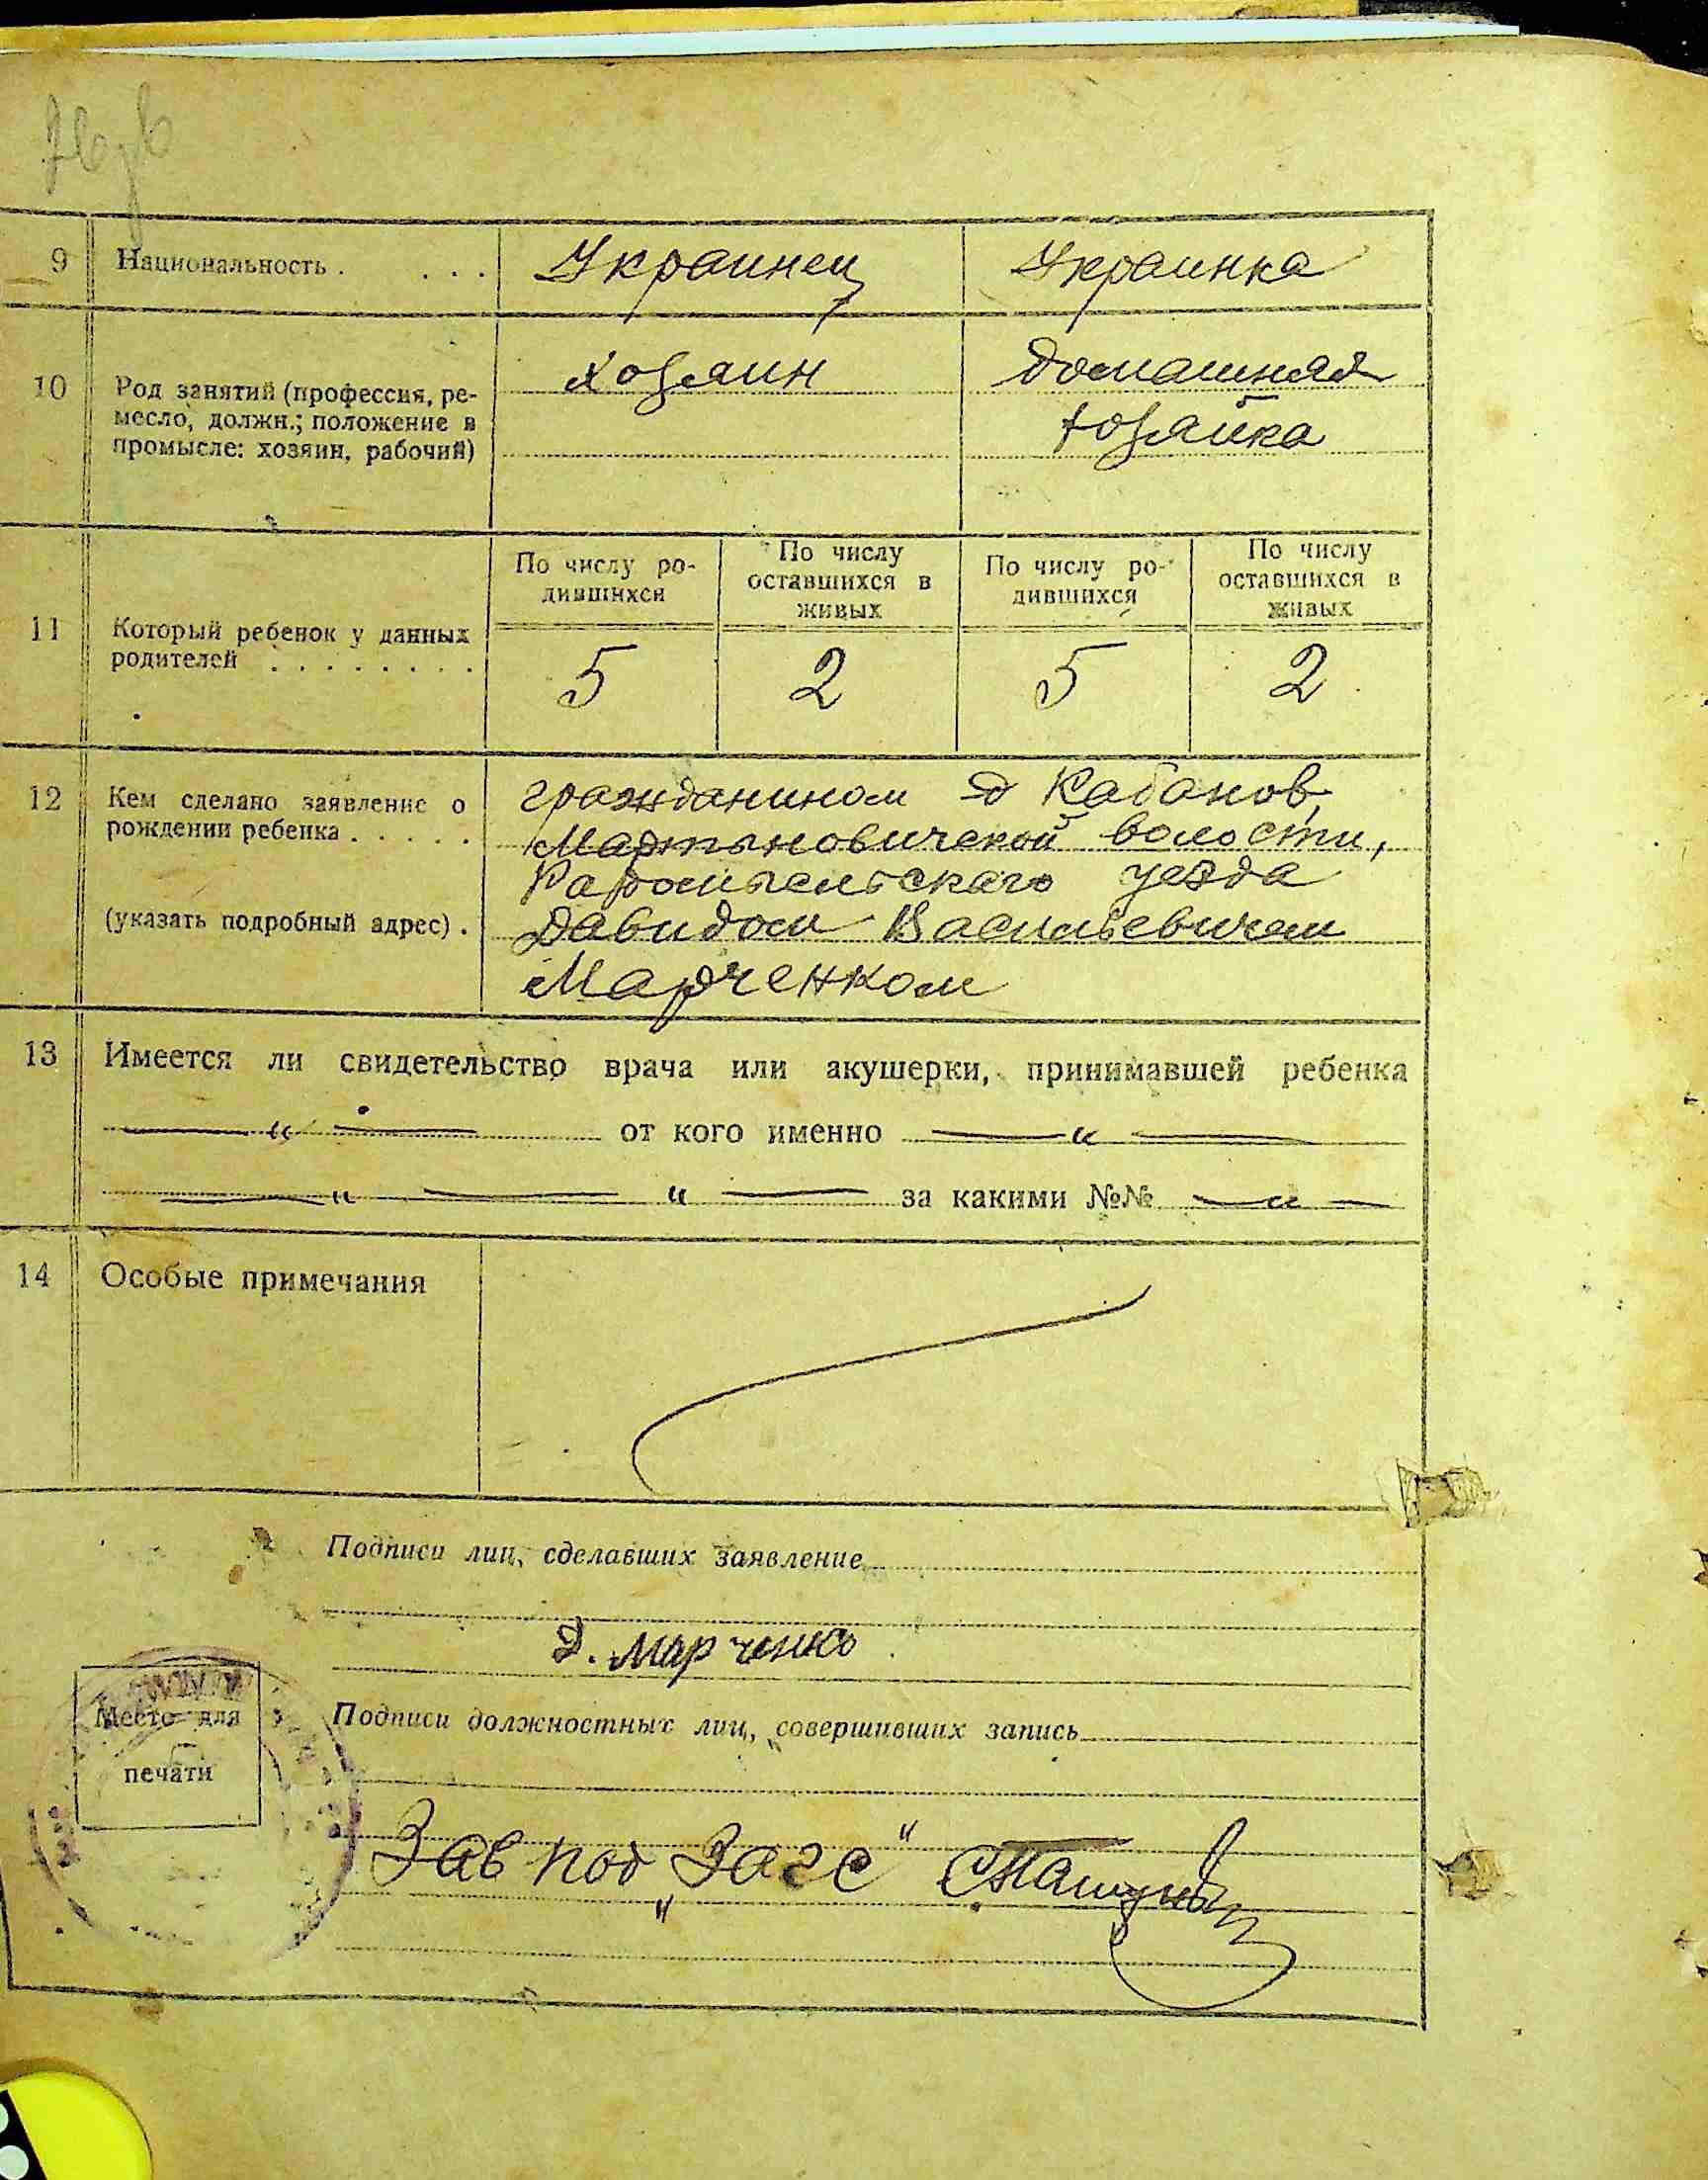 9 Национальность . . . . Украинец Украинка
10 Род занятий (профессия, ре-
месло, должн.; положение в
промысле: хозяин, рабочий)
хозяин
домашняя
хозяйка
11 Который ребенок у данных
родителей . . . . . . . .
По числу ро-
дившихся
По числу
оставшихся в
живых
По числу ро-
дившихся
По числу
оставшихся в
живых
5 2 5 2
12 Кем сделано заявление о
рождении ребенка . . . . .
(указать подробный адрес) .
гражданином д Кабанов,
Мартыновичской волости,
Радомысльскаго уезда
Давидом Васильевичем
Марченком
13 Имеется ли свидетельство врача или акушерки, принимавшей ребенка
— „ — от кого именно — „ —
— „ — „ — за какими №№ — „ —
14 Особые примечания
Подписи лиц, сделавших заявление
Д. Марченко
Место для
печати
Подписи должностных лиц, совершивших запись
Зав под „Загс"